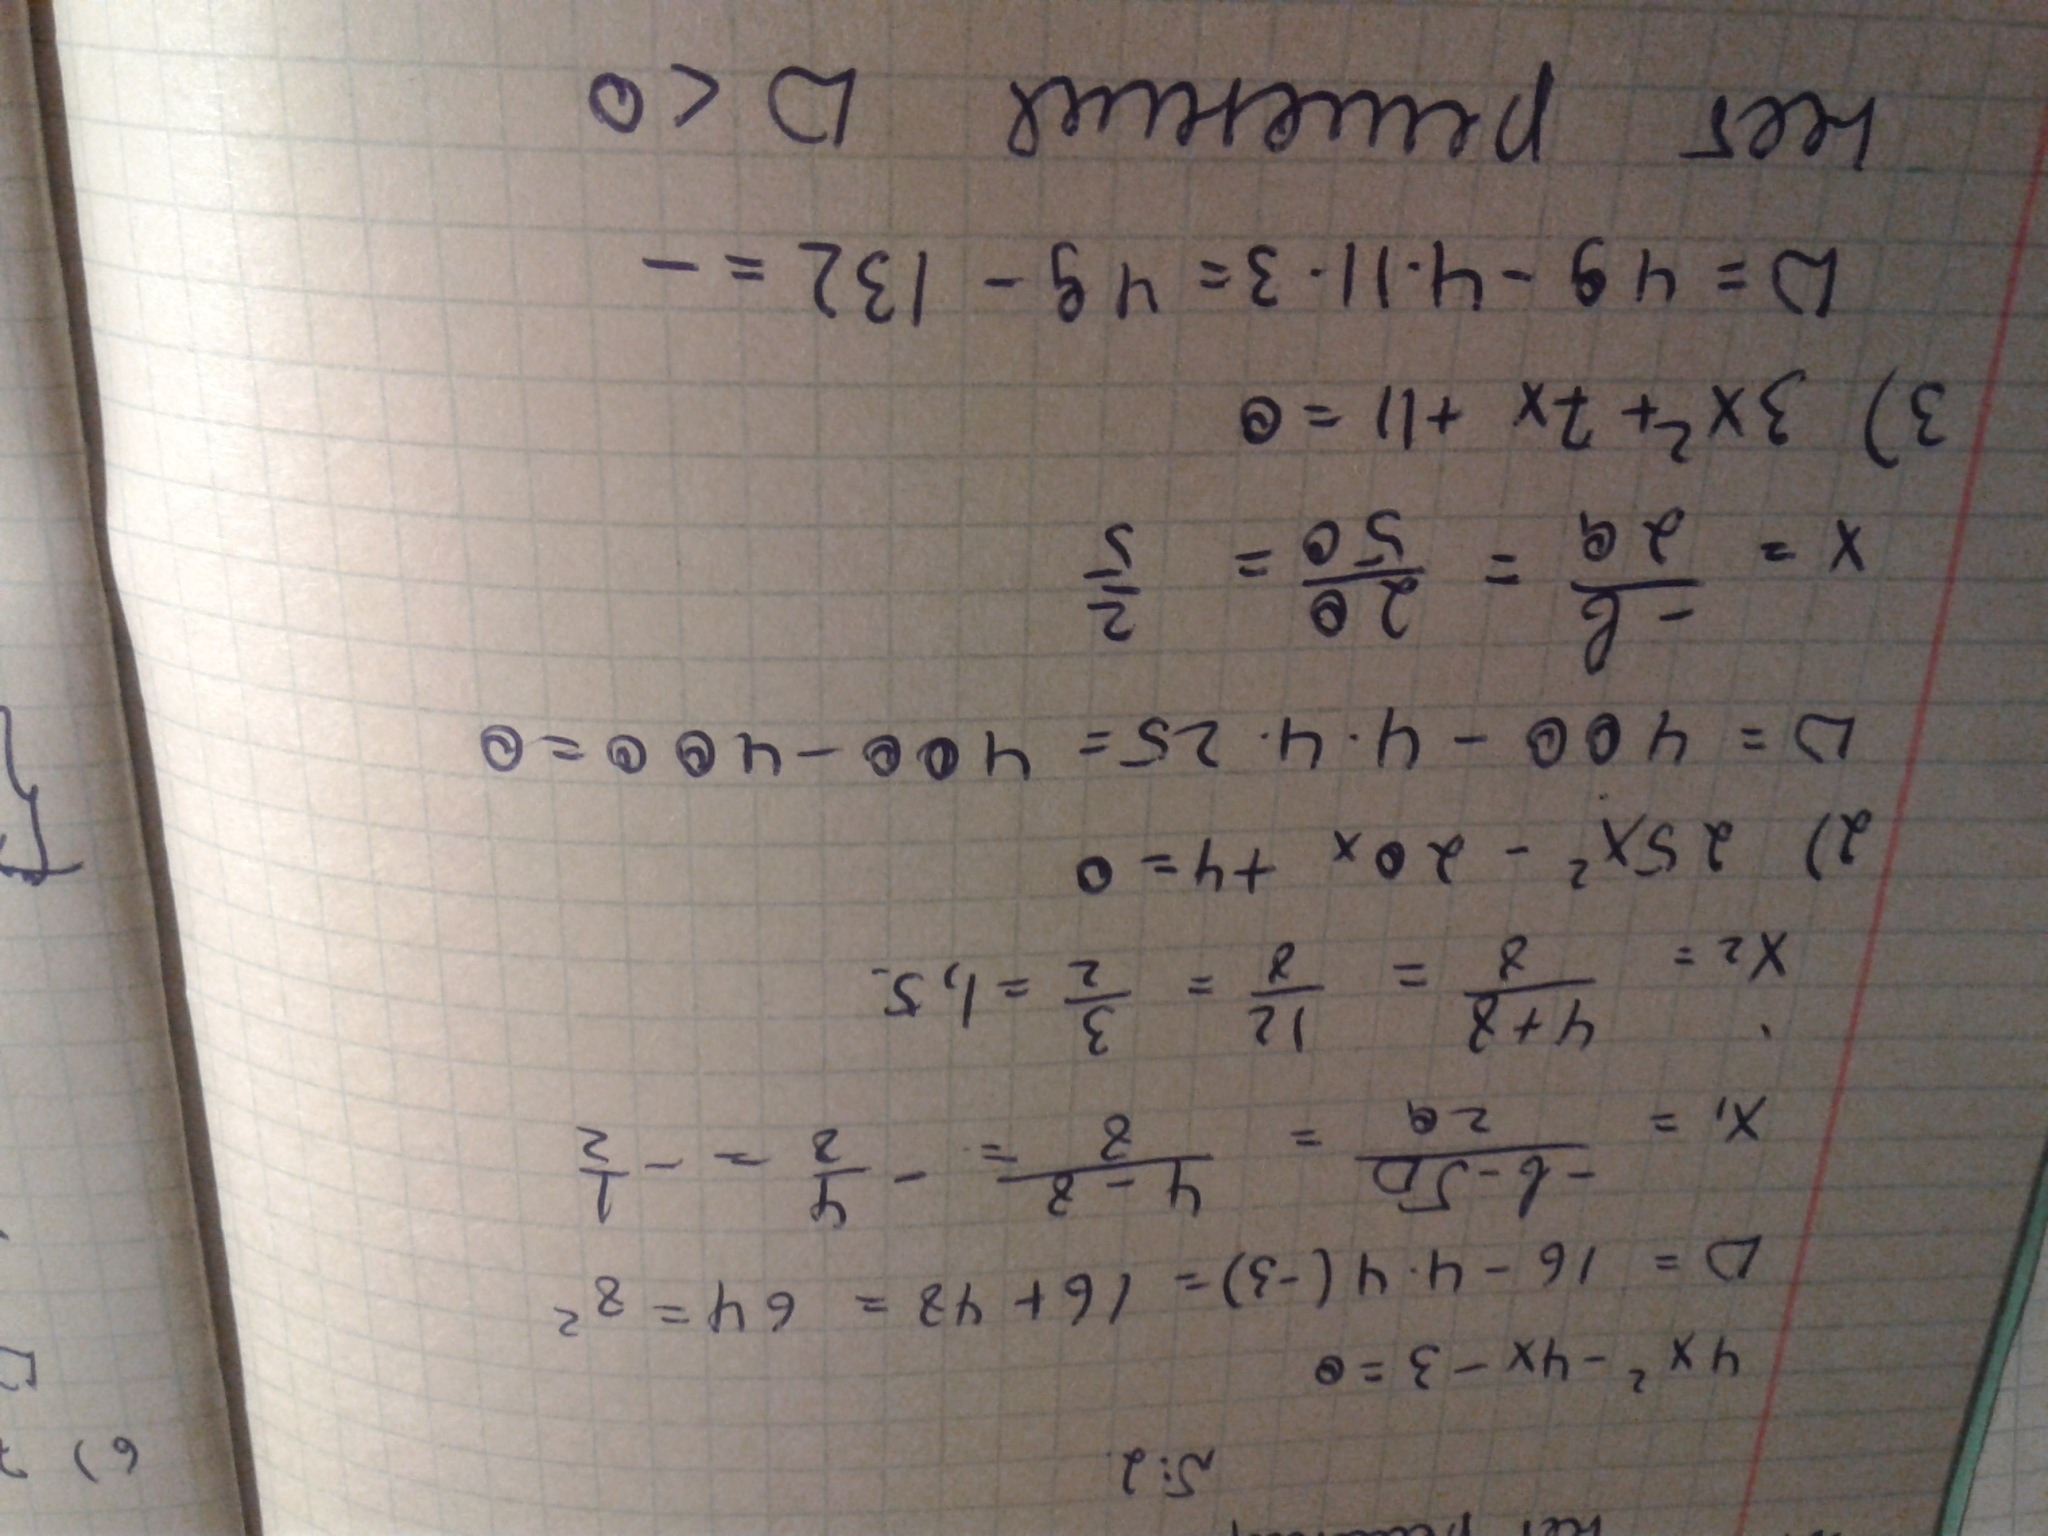 нет
5:2.
4x² - 4x - 3 = 0
D = 16 - 4·4(-3) = 16 + 48 = 64 = 8²
x₁ = (-b-√D)/(2a) = (4-8)/8 = -4/8 = -1/2
x₂ = (4+8)/8 = 12/8 = 3/2 = 1,5.
2) 25x² - 20x + 4 = 0
D = 400 - 4·4·25 = 400 - 400 = 0
x = -b/(2a) = 20/50 = 2/5
3) 3x² + 7x + 11 = 0
D = 49 - 4·11·3 = 49 - 132 = -
нет решения D < 0
6)